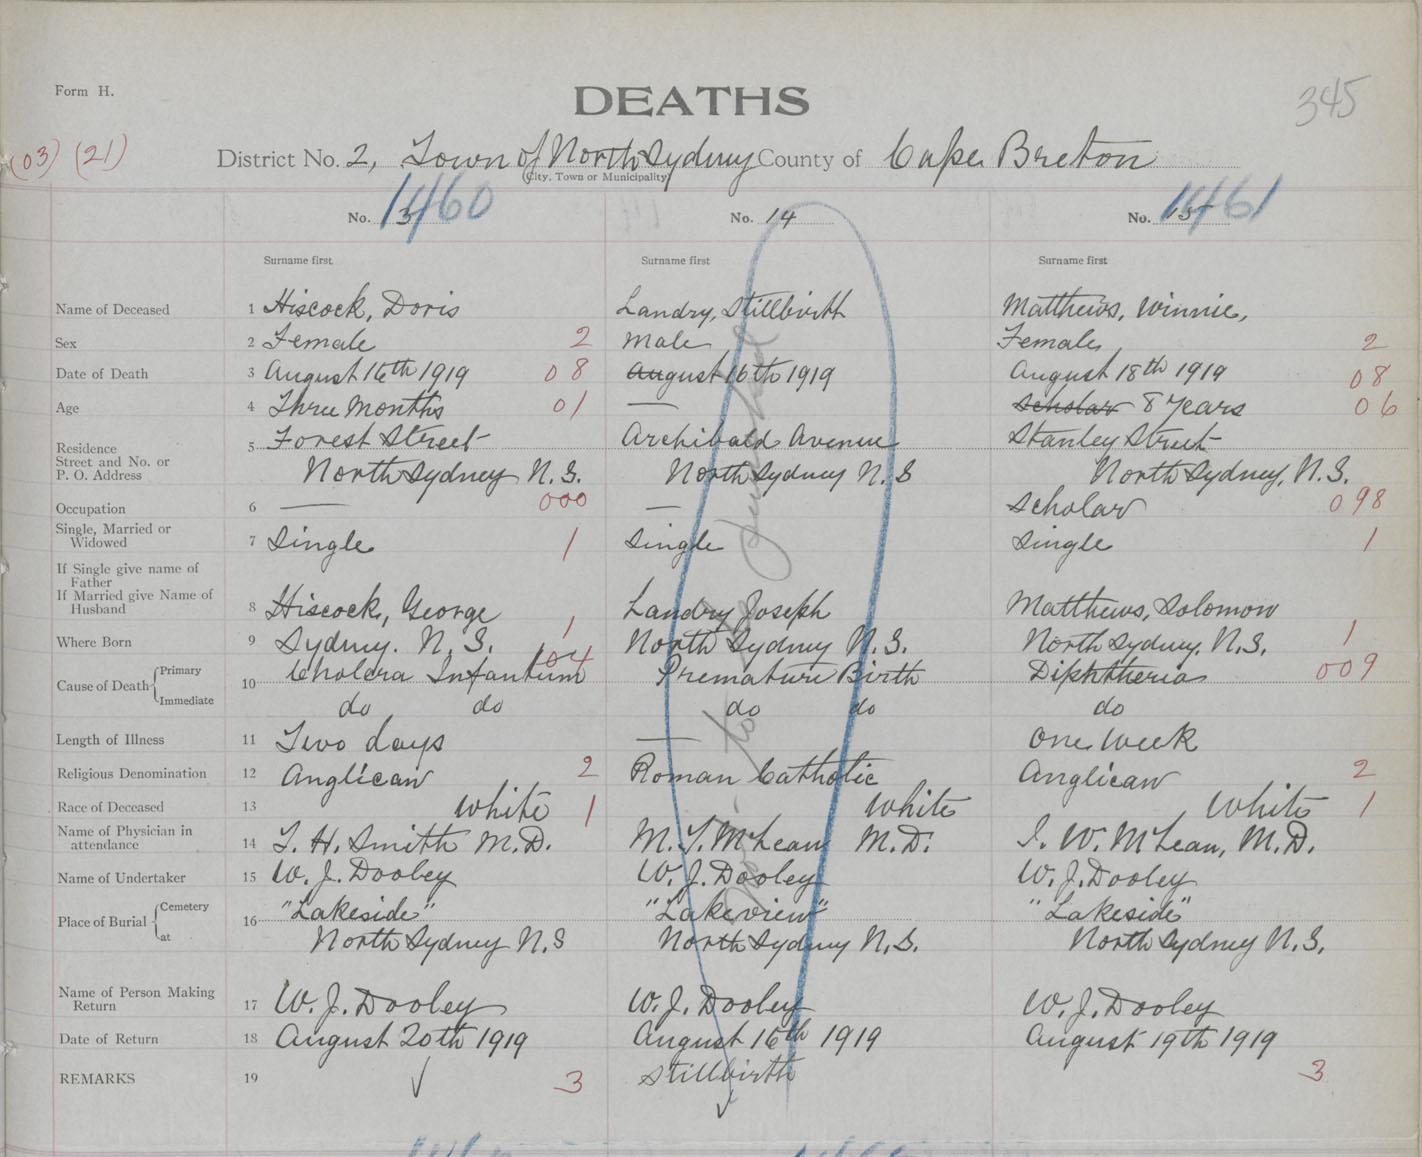 Form H.
DEATHS
345
(03) (21)
District No. 2, Town of North Sydney County of Cape Breton
(City, Town or Municipality)
No. 13 1460 No. 14 No. 15 1461
Surname first Surname first Surname first
Name of Deceased 1 Hiscock, Doris Landry, Stillbirth Matthews, Winnie,
Sex 2 Female 2 Male Female 2
Date of Death 3 August 16th 1919 08 August 16th 1919 August 18th 1919 08
Age 4 Three Months 01 — scholar 8 Years 06
Residence
Street and No. or
P. O. Address
5 Forest Street Archibald Avenue Stanley Street
North Sydney N.S. North Sydney N.S North Sydney, N.S.
Occupation 6 — 000 — scholar 098
Single, Married or
Widowed
7 Single 1 single single 1
If Single give name of
Father
If Married give Name of
Husband
8 Hiscock, George Landry Joseph Matthews, Solomon
Where Born 9 Sydney. N.S. 1 North Sydney N.S. North Sydney, N.S. 1
Cause of Death Primary
Immediate
10 Cholera Infantum 104 Premature Birth Diphtheria 009
do do do do do
Length of Illness 11 Two days — One week
Religious Denomination 12 Anglican 2 Roman Catholic Anglican 2
Race of Deceased 13 White 1 White White 1
Name of Physician in
attendance
14 T. H. Smith M.D. M. T. McLean M.D. J. W. McLean, M.D.
Name of Undertaker 15 W. J. Dooley W. J. Dooley W. J. Dooley
Place of Burial Cemetery
at
16 "Lakeside" "Lakeview" "Lakeside"
North Sydney N.S North Sydney N.S. North Sydney N.S.
Name of Person Making
Return
17 W. J. Dooley W. J. Dooley W. J. Dooley
Date of Return 18 August 20th 1919 August 16th 1919 August 19th 1919
REMARKS 19 3 Stillbirth 3
Not to be punched